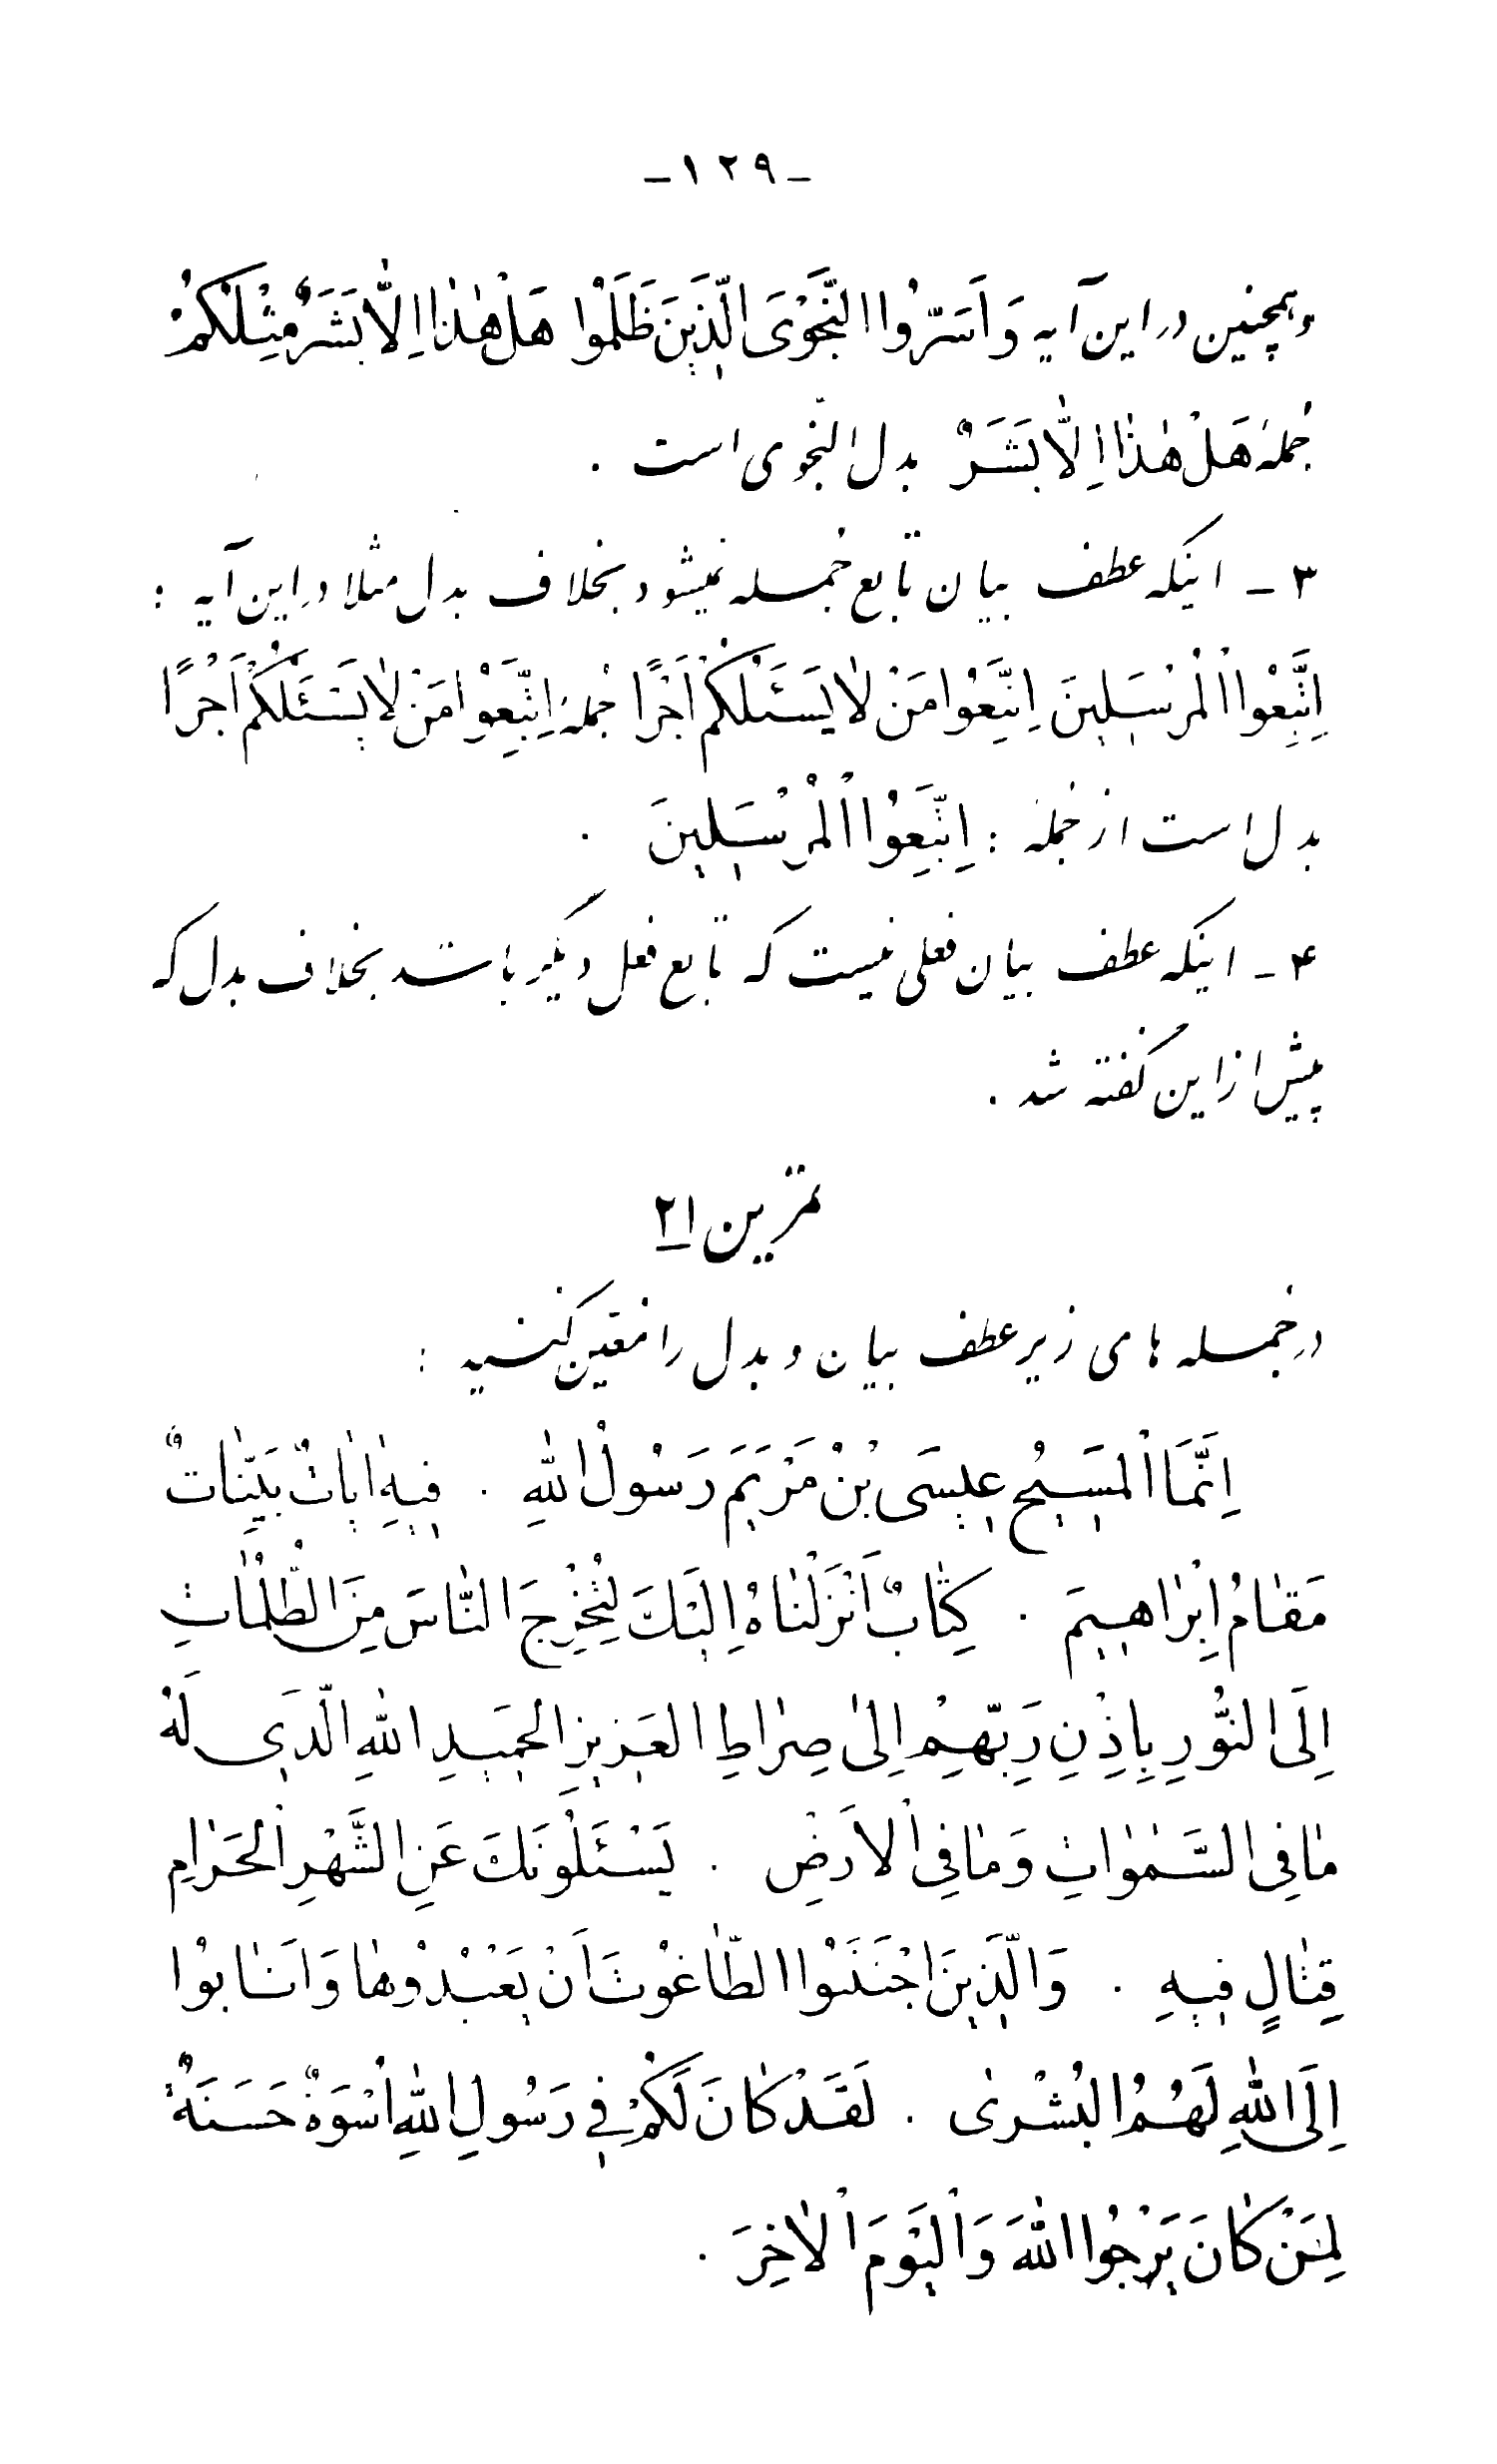 -۱۲۹-
وهمچنین در این آیه وَاَسَرُّوا النَّجْوَی الَّذینَ ظَلَمُوا هَلْ هٰذا اِلّا بَشَرٌ مِثْلُکُمْ
جُملهٔ هَلْ هٰذا اِلّا بَشَرٌ بدل النّجوی است .
۳ - اینکه عطف بیان تابع جُمله نمیشود بخلاف بدل مثلا در این آیه :
اِتَّبِعُوا الْمُرْسَلینَ اِتَّبِعُوا مَنْ لٰا یَسَئَلُکُمْ اَجْرًا جُملهٔ اِتَّبِعُوا مَنْ لٰا یَسَئَلُکُمْ اَجْرًا
بدل است از جُملهٔ : اِتَّبِعُوا الْمُرْسَلینَ .
۴ - اینکه عطف بیان فعلی نیست که تابع فعل دیگر باشد بخلاف بدل که
پیش از این گفته شد .
تمرین ۲۱
در جُمله های زیر عطف بیان و بدل را مُعَیّن کُنید :
اِنَّمَا الْمَسیحُ عیسَی بْنُ مَرْیَمَ رَسُولُ اللهِ . فیهِ اٰیٰاتٌ بَیِّنٰاتٌ
مَقٰامُ اِبْرٰاهیمَ . کِتٰابٌ اَنْزَلْنٰاهُ اِلَیْکَ لِتُخْرِجَ النّٰاسَ مِنَ الظُّلُمٰاتِ
اِلَی النُّورِ بِاِذْنِ رَبِّهِمْ اِلیٰ صِرٰاطِ الْعَزیزِ الْحَمیدِ اللهِ الَّذی لَهُ
مٰا فِی السَّمٰوٰاتِ وَمٰا فِی الْاَرْضِ . یَسْئَلُونَکَ عَنِ الشَّهْرِ الْحَرٰامِ
قِتٰالٍ فیهِ . وَالَّذینَ اجْتَنَبُوا الطّٰاغُوتَ اَنْ یَعْبُدُوهٰا وَاَنٰابُوا
اِلَی اللهِ لَهُمُ الْبُشْرٰی . لَقَدْ کٰانَ لَکُمْ فی رَسُولِ اللهِ اُسْوَةٌ حَسَنَةٌ
لِمَنْ کٰانَ یَرْجُوا اللهَ وَالْیَوْمَ الْاٰخِرَ .